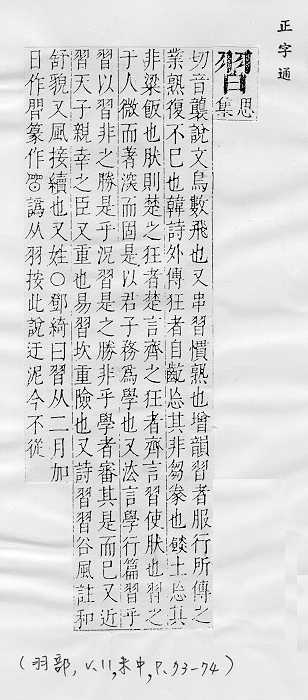 正字通
習 思集
切音襲說文鳥數飛也又串習慣熟也增韻習者服行所傳之
業熟復不已也韓詩外傳狂者自齕忘其非芻豢也餤土忘其
非梁飯也肰則楚之狂者楚言齊之狂者齊言習使肰也習之
于人微而著深而固是以君子務為學也又法言學行篇習乎
習以習非之勝是乎況習是之勝非乎學者審其是而已又近
習天子親幸之臣又重也易習坎重險也又詩習習谷風註和
舒貌又風接續也又姓○鄧綺曰習从二月加
日作篆作譌从羽按此說迂泥今不從
(羽部, V.11, 未中, P.73-74)